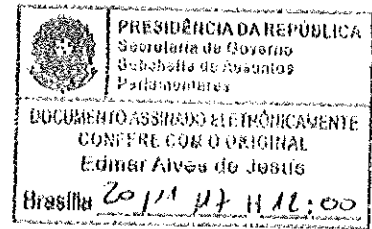 PRESIDÊNCIA DA REPÚBLICA
Secretaria de Governo
Subchefia de Assuntos
Parlamentares
DOCUMENTO ASSINADO ELETRÔNICAMENTE
CONFERE COM O ORIGINAL
Edmar Alves de Jesus
Brasília 20/11/17 H 12:00